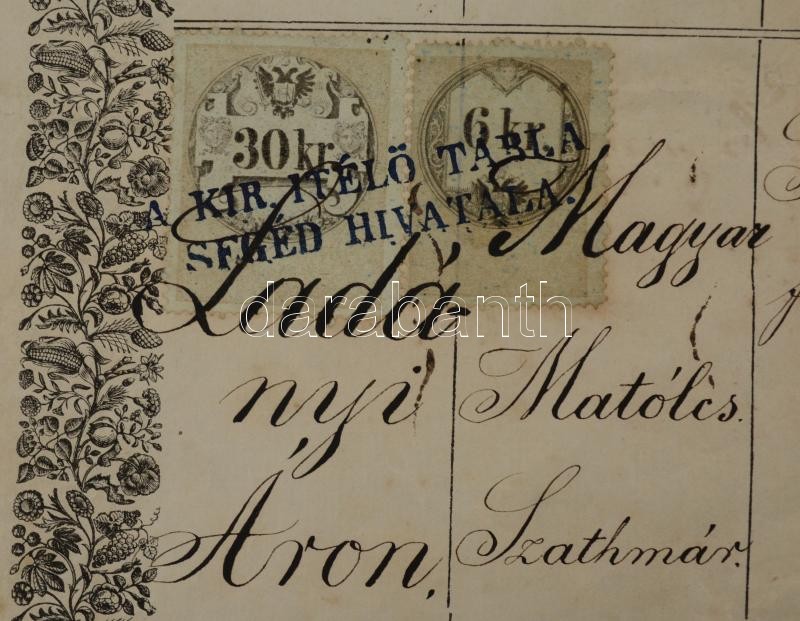 30 kr.
6 kr.
A KIR. ITÉLŐ TABLA
SEGÉD HIVATALA.
Ladá
Magyar
darabanth
nyi
Matólcs.
Áron,
Szathmár.